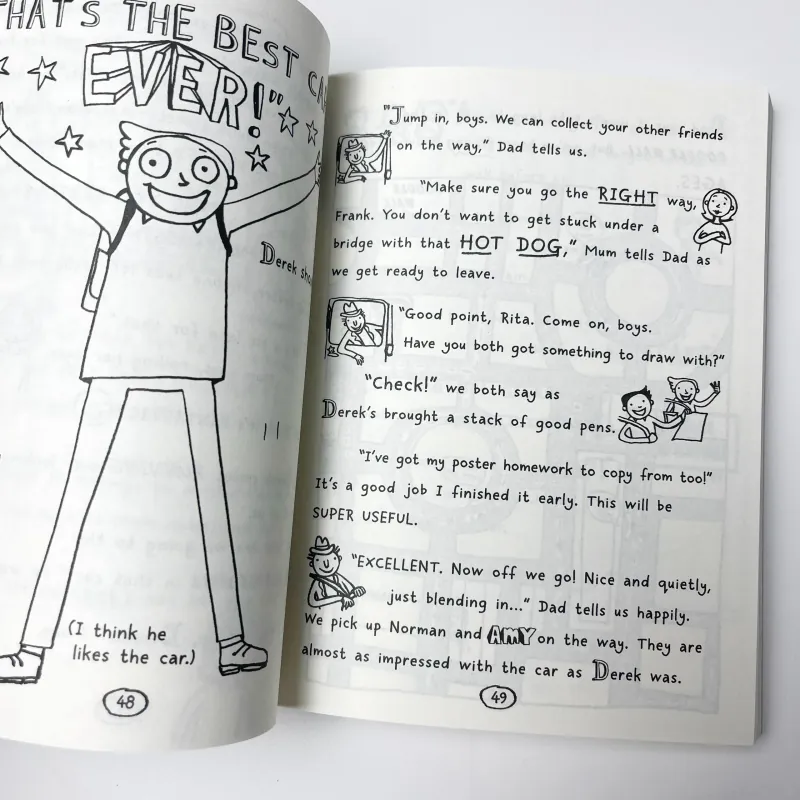 THAT'S THE BEST
EVER!"
Derek
(I think he
likes the car.)
48
"Jump in, boys. We can collect your other friends
on the way," Dad tells us.
"Make sure you go the RIGHT way,
Frank. You don't want to get stuck under a
bridge with that HOT DOG," Mum tells Dad as
we get ready to leave.
"Good point, Rita. Come on, boys.
Have you both got something to draw with?"
"Check!" we both say as
Derek's brought a stack of good pens.
"I've got my poster homework to copy from too!"
It's a good job I finished it early. This will be
SUPER USEFUL.
"EXCELLENT. Now off we go! Nice and quietly,
just blending in..." Dad tells us happily.
We pick up Norman and AMY on the way. They are
almost as impressed with the car as Derek was.
49